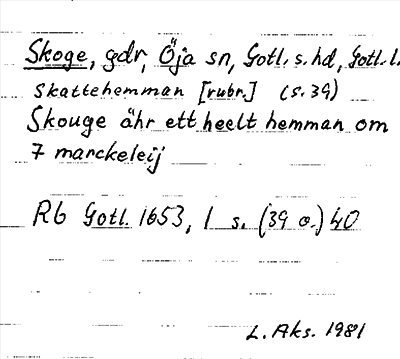 Skoge, gdr, Öja sn, Gotl. s. hd, Gotl. l.
Skattehemman [rubr.] (s. 39)
Skouge ähr ett heelt hemman om
7 marckeleij
Rb Gotl. 1653, 1 s. (39 o.) 40
L. Aks. 1981